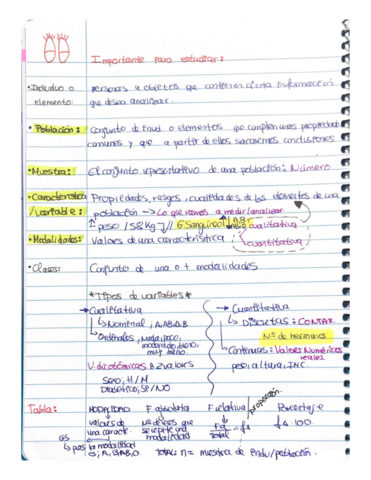 Importante para estudiar:
• Individuo o personas u objetos que contienen cierta información
elemento: que desea analizar.
• Población: Conjunto de Indiv. o elementos que cumplen unas propiedades
comunes y que a partir de ellos sacaremos conclusiones
• Muestra: El conjunto representativo de una población: Número
• Característica Propiedades, rasgos, cualidades de los elementos de una
/variable: población → Lo que vamos a medir/analizar
peso / 58 Kg // G. Sanguíneo cualitativa
• Modalidades: Valores de una característica cuantitativa
• Clases: Conjunto de una o + modalidades
* Tipos de variables *
→ Cualitativa → Cuantitativa
↳ Nominal, A,B,AB,O ↳ Discretas: CONTAR
↳ Ordinales, Nada, poco, Nº de hermanos
moderado, bueno, ↳ Continuas: Valores Numéricos
muy bueno reales
V. dicotómicos 2 valores peso, altura, IMC
Sexo, H/M
Diabético, SI/NO
Tabla: MODALIDAD F absoluta F relativa proporción Porcentaje
valores de Nº de veces que Fa = fr fr·100
una caracte. se repite una Total
GS modalidad
↳ pos la modalidad
es, A, B, AB, O Total: n = muestra de población.